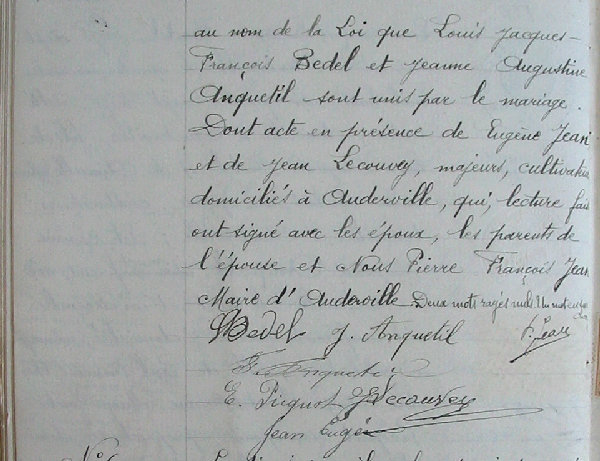 au nom de la Loi que Louis Jacques-
François Bedel et Jeanne Augustine
Anquetil sont unis par le mariage.
Dont acte en présence de Eugène Jean
et de Jean Lecouvey, majeurs, cultivateu
domiciliés à Auderville, qui, lecture fai
ont signé avec les époux, les parents de
l'épouse et Nous Pierre François Jean
Maire d'Auderville Deux mots rayés nuls
LBedel J. Anquetil P. Jean
Anquetil
E. Picquot JLecouvey
Jean Eugé